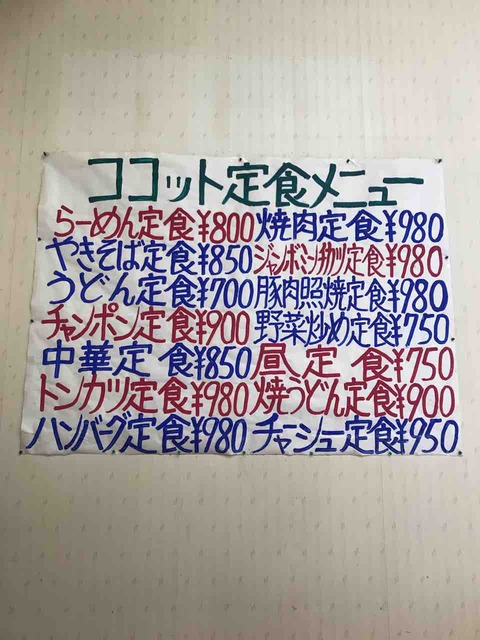 ココット定食メニュー
らーめん定食¥800 焼肉定食¥980
やきそば定食¥850 ジャンボミンチカツ定食¥980
うどん定食¥700 豚肉照焼定食¥980
チャンポン定食¥900 野菜炒め定食¥750
中華定食¥850 昼定食¥750
トンカツ定食¥980 焼うどん定食¥900
ハンバーグ定食¥980 チャーシュー定食¥950